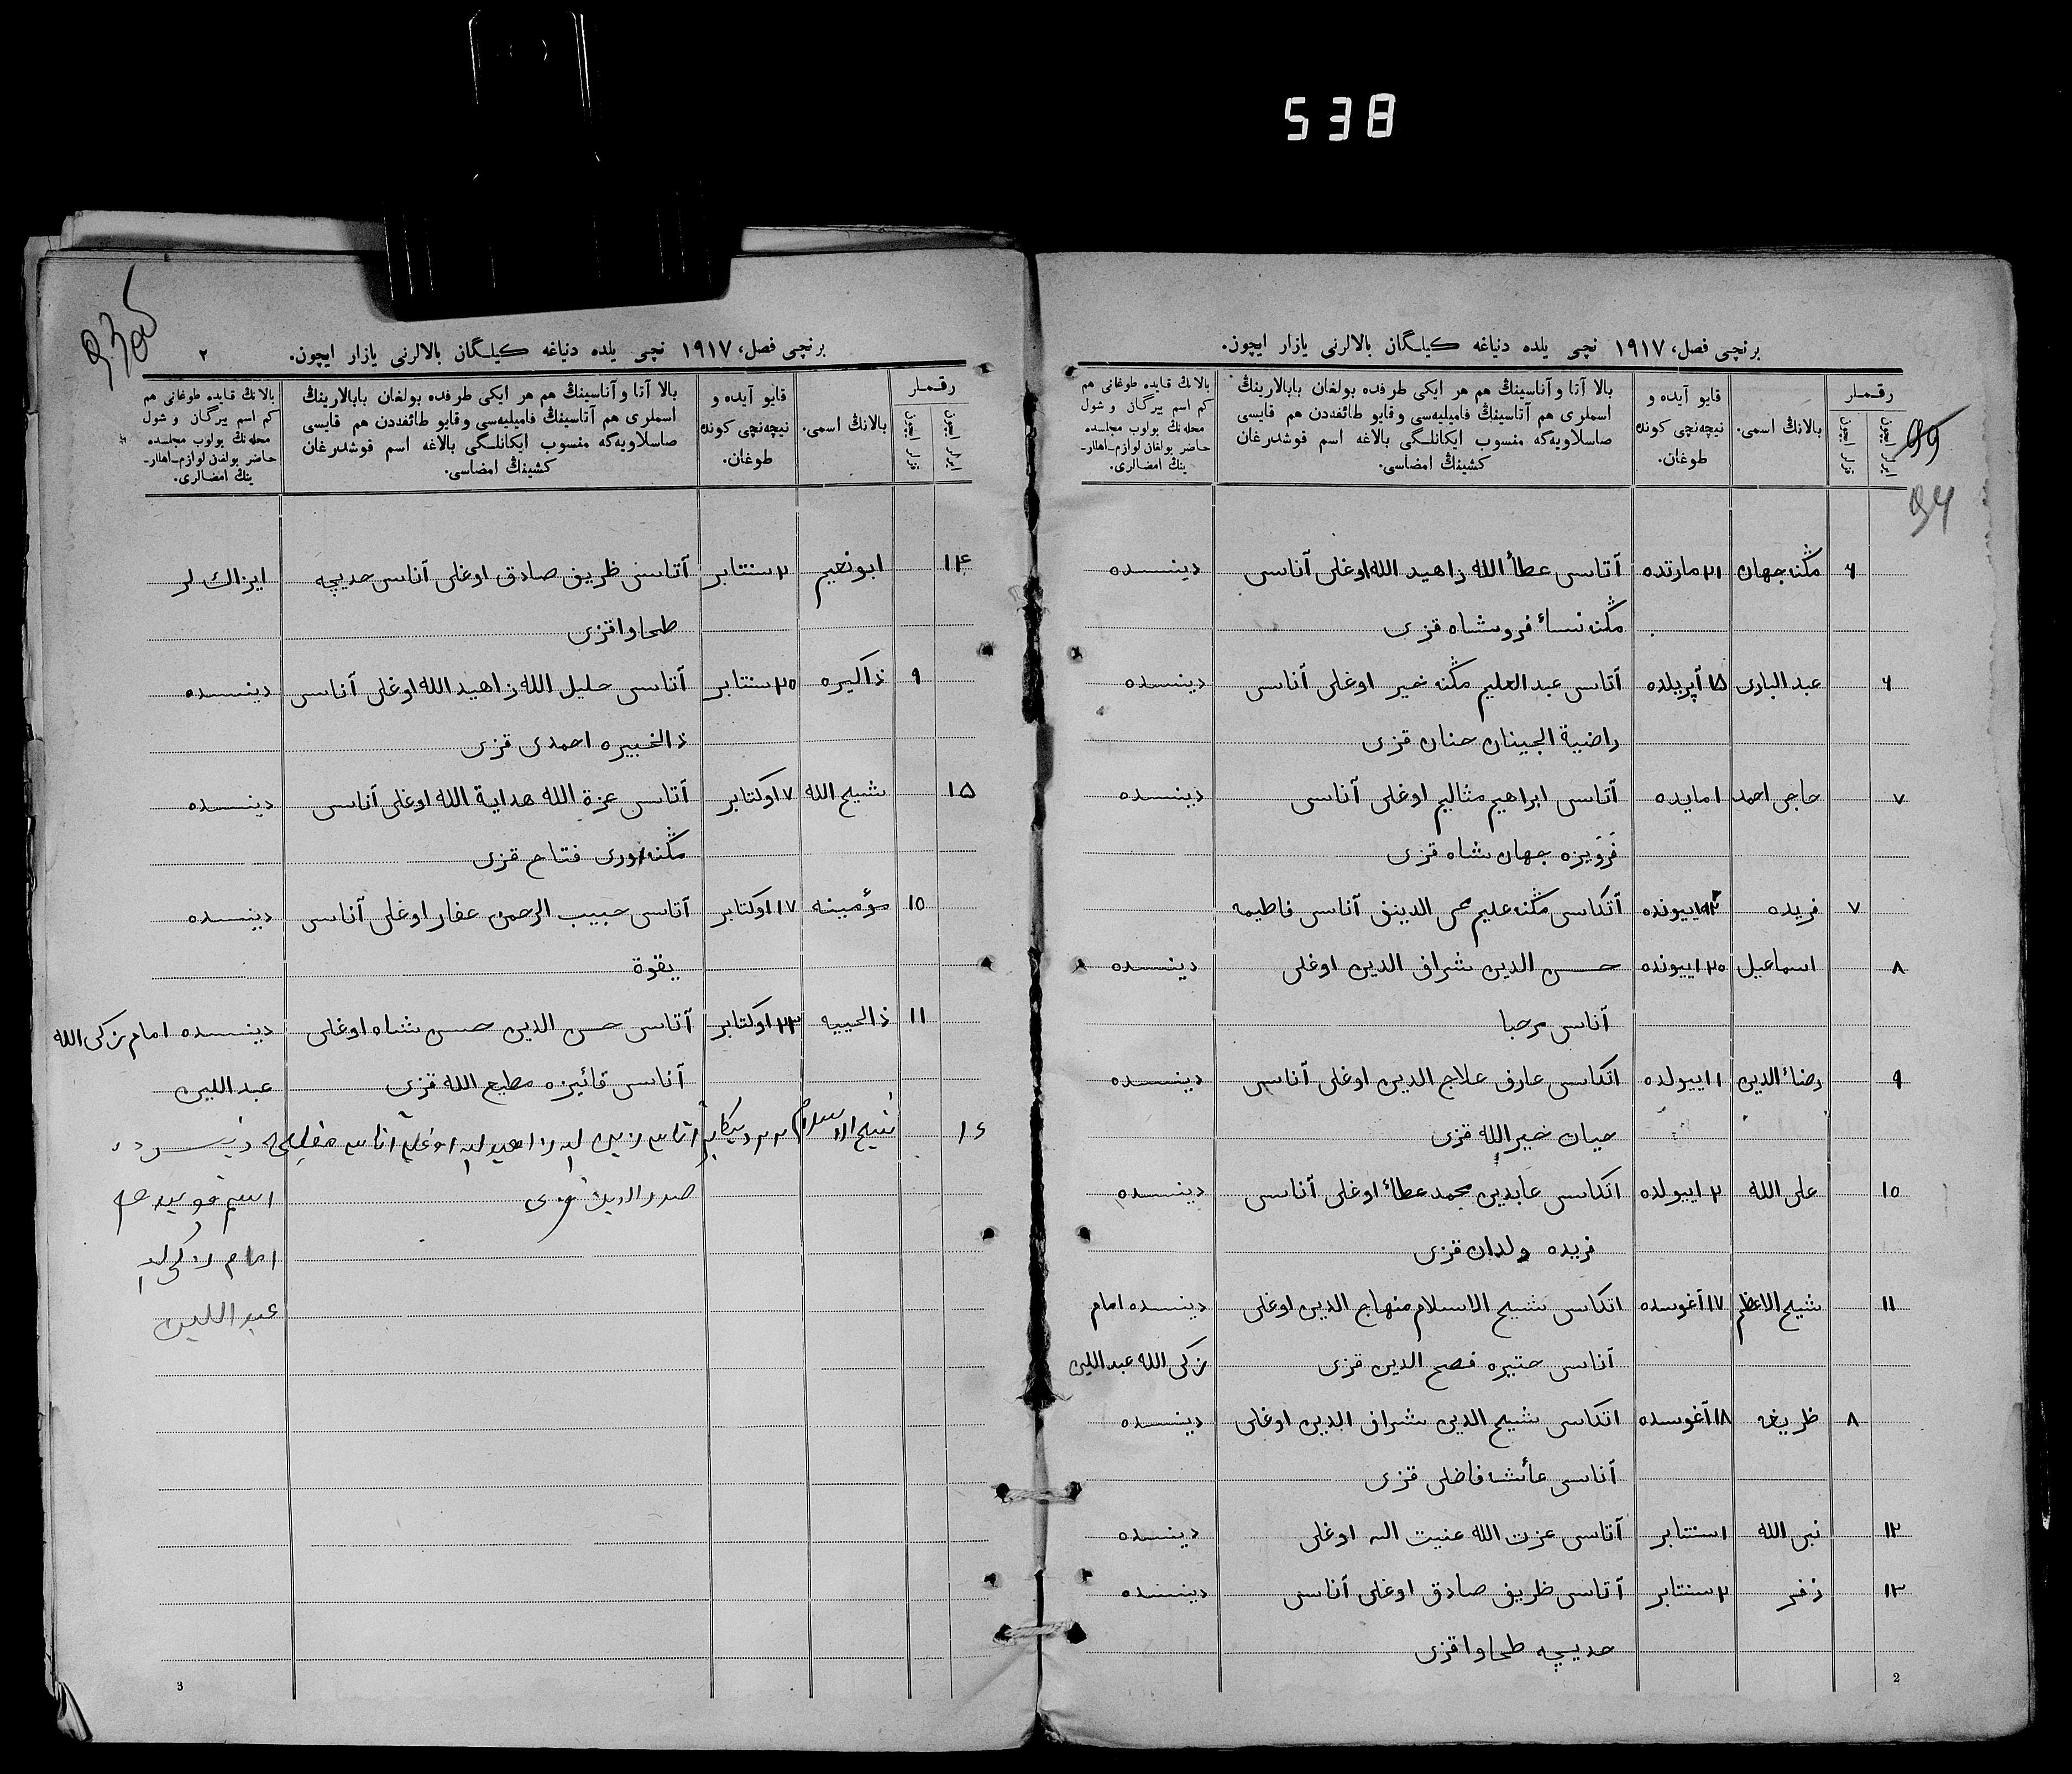 538
برنچی فصل، ١٩١٧ نچی یلده دنیاغه کیلـگان بالالرنی یازار ایچون.
رقـمـار
ایرلر ایچون
قزلر ایچون
بالانڭ اسمی.
قایو آیده و نیچه‌نچی کونده طوغان.
بالا آتا و آناسینڭ هم هر ایکی طرفده بولغان بابالارینڭ
اسملری هم آتاسینڭ فامیلیه‌سی و قایو طائفه‌دن هم قایسی
صاسلاویه‌گه منسوب ایکانلـگی بالاغه اسم قوشدرغان
کشینڭ امضاسی.
بالانڭ قایده طوغانی هم
کم اسم بیرگان و شول
محله‌نڭ بولوب مجلـسده
حاضر بولغان لوازم-اهللر-
ینڭ امضالری.
99
94
٦ مڭنه جهان ٢١ مارتده آتاسی عطأ الله زاهید الله اوغلی آناسی دینسده
مڭنه نسأ فروشاه قزی
٦ عبد الباری ١٥ آپریلده آتاسی عبد العلیم مڭنه خیر اوغلی آناسی دینسده
راضیة الجینان حنان قزی
٧ حاجی احمد ١ مایده آتاسی ابراهیم مثالیم اوغلی آناسی دینسده
فرویزه جهان شاه قزی
٧ فریده ایونده آتکاسی مڭنه علیم الدینف آناسی فاطیمه
٨ اسماعیل ٢٥ ایونده حسن الدین شراف الدین اوغلی دینسده
آناسی مرحبا
٩ رضاء الدین ١ ایولده اتکاسی عارف علاج الدین اوغلی آناسی دینسده
حیان خیر الله قزی
١٥ علی الله ٢ ایولده اتکاسی عابدین محمد عطأ اوغلی آناسی دینسده
فریده ولدان قزی
١١ شیح الاعظم ١٧ آغوسده اتکاسی شیح الاسلام منهاج الدین اوغلی دینسده امام
آناسی فصح الدین قزی زکی الله عبد اللین
٨ ظریفه ١٨ آغوسده اتکاسی شیح الدین شراف الدین اوغلی دینسده
آناسی عأئشه فاضلی قزی
١٢ نبی الله ١ سنتابر آتاسی عزت الله عنیت الله اوغلی دینسده
١٣ ذفر ٢ سنتابر آتاسی ظریف صادق اوغلی آناسی دینسده
حدیچه طحاوا قزی
2
930
برنچی فصل، ١٩١٧ نچی یلده دنیاغه کیلـگان بالالرنی یازار ایچون.
٢
رقـمـار
ایرلر ایچون
قزلر ایچون
بالانڭ اسمی.
قایو آیده و نیچه‌نچی کونده طوغان.
بالا آتا و آناسینڭ هم هر ایکی طرفده بولغان بابالارینڭ
اسملری هم آتاسینڭ فامیلیه‌سی و قایو طائفه‌دن هم قایسی
صاسلاویه‌گه منسوب ایکانلـگی بالاغه اسم قوشدرغان
کشینڭ امضاسی.
بالانڭ قایده طوغانی هم
کم اسم بیرگان و شول
محله‌نڭ بولوب مجلـسده
حاضر بولغان لوازم-اهللر-
ینڭ امضالری.
١٤ ابونعیم ٢ سنتابر آتاسی ظریف صادق اوغلی آناسی حدیچه ایزاك لر
طحاوا قزی
٩ ذاکیره ٢٥ سنتابر آتاسی حلیل الله زاهید الله اوغلی آناسی دینسده
ذالخبیره احمدی قزی
١٥ شیح الله ٧ اوکتابر آتاسی عزة الله هدایة الله اوغلی آناسی دینسده
مڭنه نوری فتاح قزی
١٥ مؤمینه ١٧ اوکتابر آتاسی حبیب الرحمن عفار اوغلی آناسی دینسده
یقوة
١١ ذالحبیبه ٢٣ اوکتابر آتاسی حسن الدین حسن شاه اوغلی دینسده امام زکی الله
آناسی فائیزه مطیع الله قزی عبد اللین
١٦ شیح الاسلام ٢٢ دیکابر آتاسی الله زاهید الله اوغلی آناسی
صدر الدین قزی اسم
امام زکی الله
عبد اللین
3